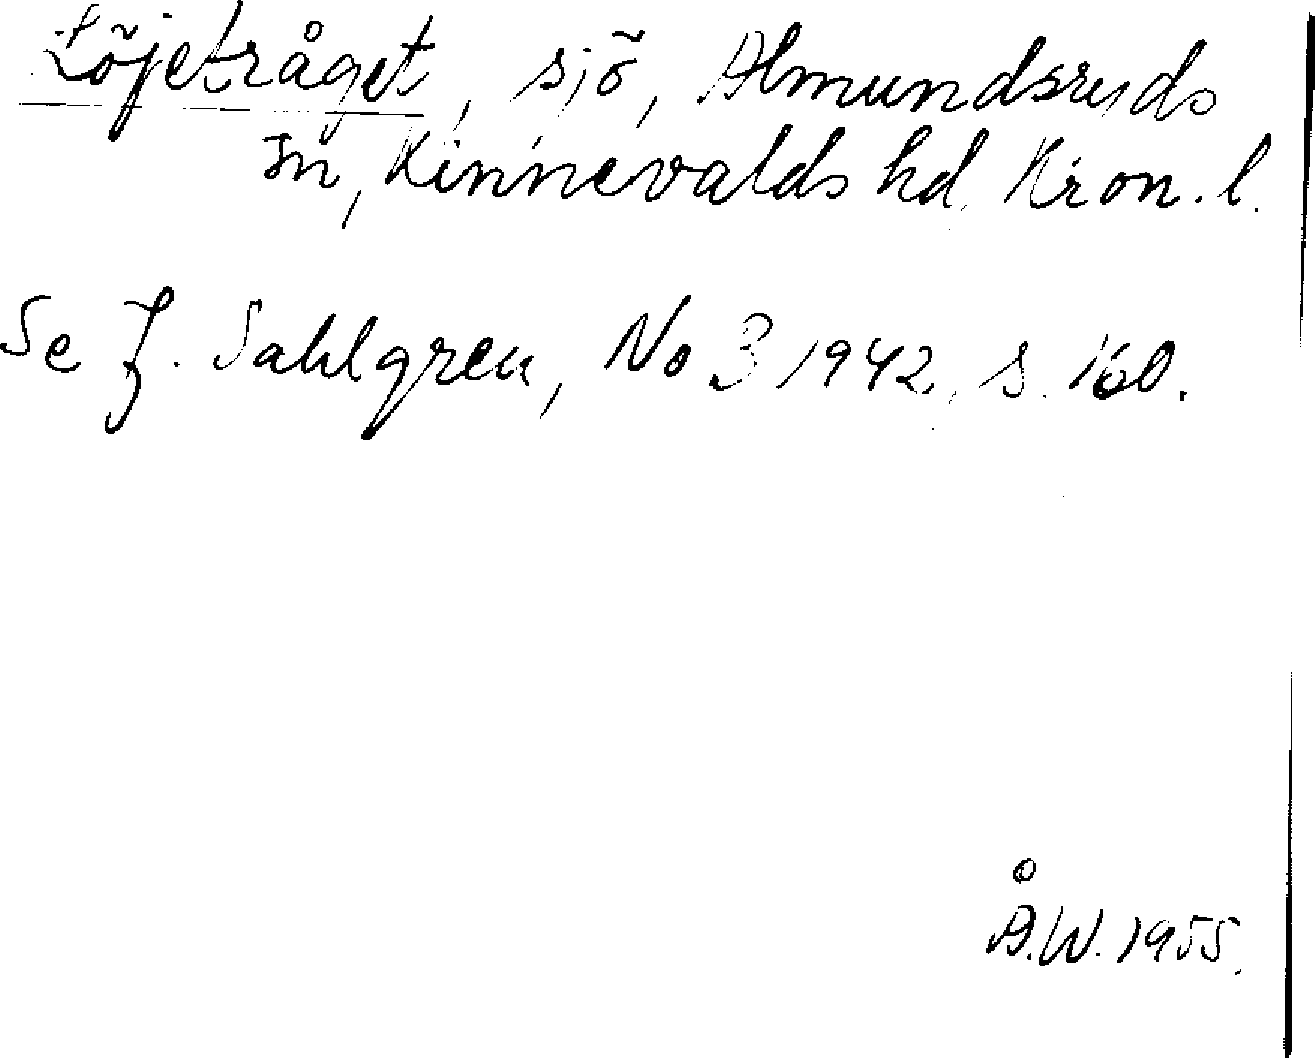 Löjetråget, sjö, Almundsryds
sn, Kinnevalds hd, Kron. l.
Se J. Sahlgren, No B 1942, s. 160.
Å.W. 1955.